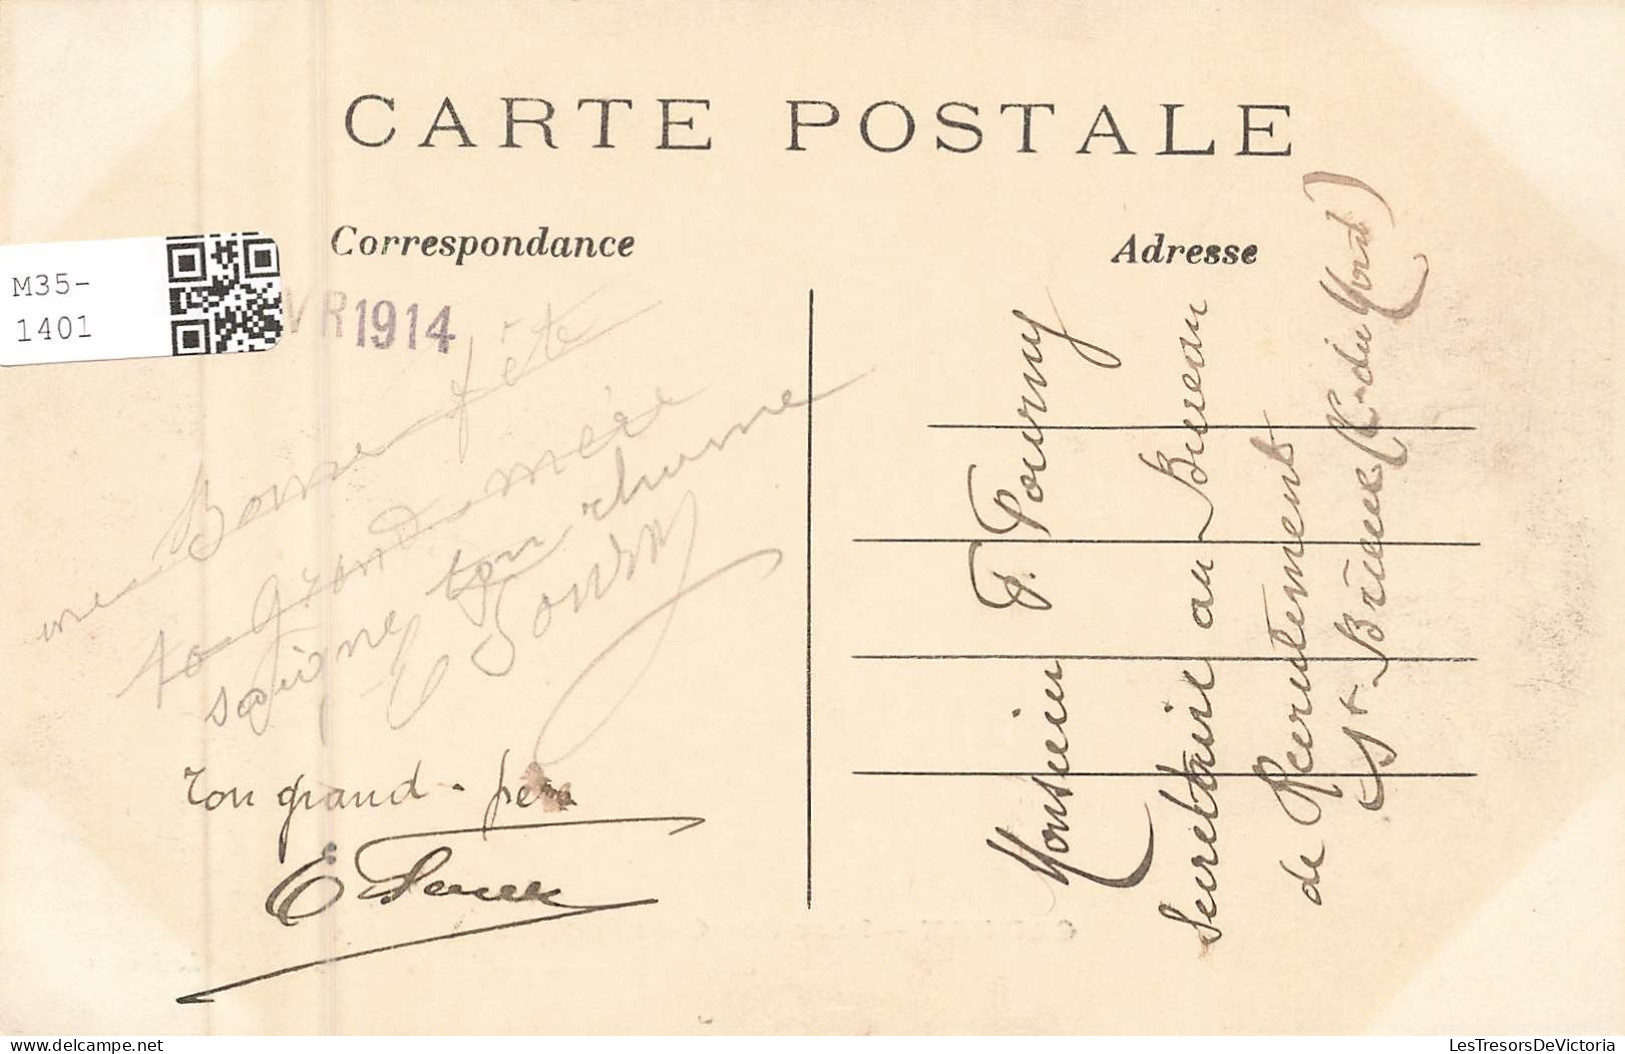 CARTE POSTALE
Correspondance
Adresse
M35-
1401
VR 1914
Bonne fête
ta Grand-mère
soigne ton rhume
Ton grand-père
Monsieur P. Pourny
Secrétaire au Bureau
de Recrutement
St Brieuc (C. du Nord)
LesTresorsDeVictoria
delcampe.net